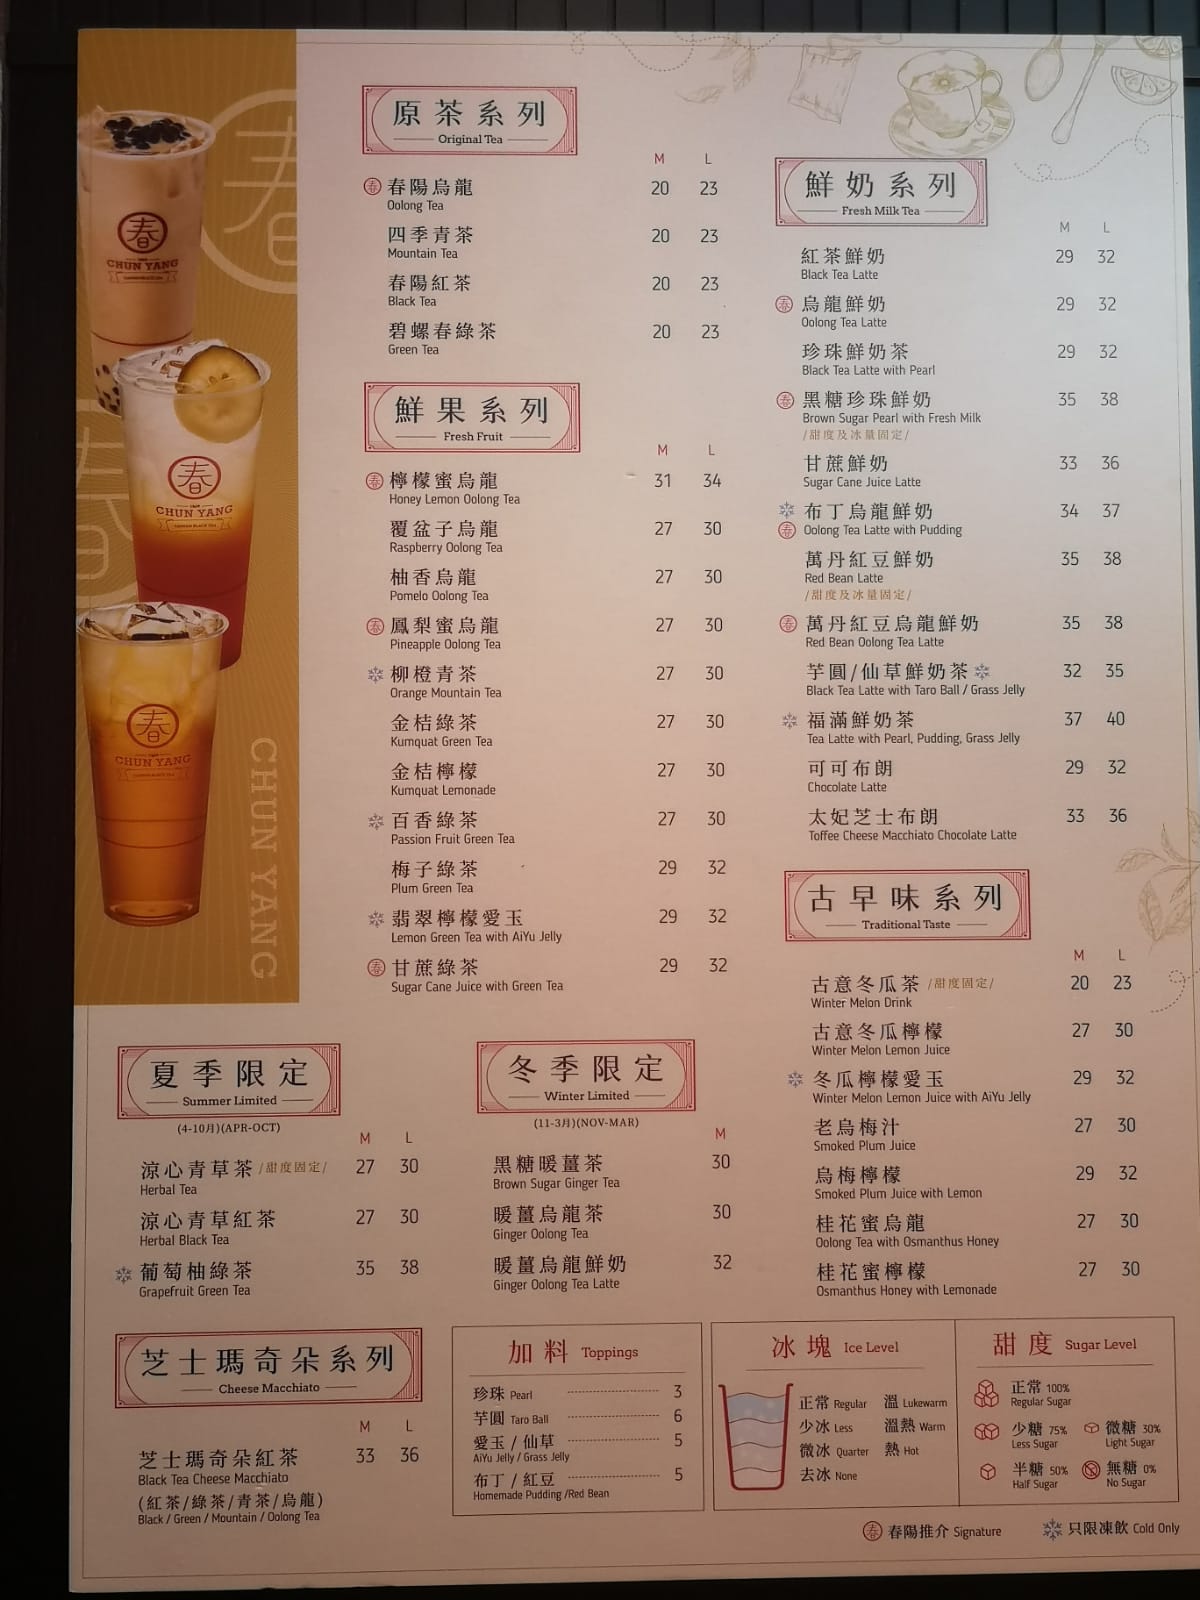 春
CHUN YANG
春
CHUN YANG
春
CHUN YANG
CHUN YANG
原茶系列
Original Tea
M L
春陽烏龍 20 23
Oolong Tea
四季青茶 20 23
Mountain Tea
春陽紅茶 20 23
Black Tea
碧螺春綠茶 20 23
Green Tea
鮮果系列
Fresh Fruit
M L
檸檬蜜烏龍 31 34
Honey Lemon Oolong Tea
覆盆子烏龍 27 30
Raspberry Oolong Tea
柚香烏龍 27 30
Pomelo Oolong Tea
鳳梨蜜烏龍 27 30
Pineapple Oolong Tea
柳橙青茶 27 30
Orange Mountain Tea
金桔綠茶 27 30
Kumquat Green Tea
金桔檸檬 27 30
Kumquat Lemonade
百香綠茶 27 30
Passion Fruit Green Tea
梅子綠茶 29 32
Plum Green Tea
翡翠檸檬愛玉 29 32
Lemon Green Tea with AiYu Jelly
甘蔗綠茶 29 32
Sugar Cane Juice with Green Tea
鮮奶系列
Fresh Milk Tea
M L
紅茶鮮奶 29 32
Black Tea Latte
烏龍鮮奶 29 32
Oolong Tea Latte
珍珠鮮奶茶 29 32
Black Tea Latte with Pearl
黑糖珍珠鮮奶 35 38
Brown Sugar Pearl with Fresh Milk
/甜度及冰量固定/
甘蔗鮮奶 33 36
Sugar Cane Juice Latte
布丁烏龍鮮奶 34 37
Oolong Tea Latte with Pudding
萬丹紅豆鮮奶 35 38
Red Bean Latte
/甜度及冰量固定/
萬丹紅豆烏龍鮮奶 35 38
Red Bean Oolong Tea Latte
芋圓/仙草鮮奶茶 32 35
Black Tea Latte with Taro Ball / Grass Jelly
福滿鮮奶茶 37 40
Tea Latte with Pearl, Pudding, Grass Jelly
可可布朗 29 32
Chocolate Latte
太妃芝士布朗 33 36
Toffee Cheese Macchiato Chocolate Latte
古早味系列
Traditional Taste
M L
古意冬瓜茶 /甜度固定/ 20 23
Winter Melon Drink
古意冬瓜檸檬 27 30
Winter Melon Lemon Juice
冬瓜檸檬愛玉 29 32
Winter Melon Lemon Juice with AiYu Jelly
老烏梅汁 27 30
Smoked Plum Juice
烏梅檸檬 29 32
Smoked Plum Juice with Lemon
桂花蜜烏龍 27 30
Oolong Tea with Osmanthus Honey
桂花蜜檸檬 27 30
Osmanthus Honey with Lemonade
夏季限定
Summer Limited
(4-10月)(APR-OCT)
M L
涼心青草茶 /甜度固定/ 27 30
Herbal Tea
涼心青草紅茶 27 30
Herbal Black Tea
葡萄柚綠茶 35 38
Grapefruit Green Tea
冬季限定
Winter Limited
(11-3月)(NOV-MAR)
M
黑糖暖薑茶 30
Brown Sugar Ginger Tea
暖薑烏龍茶 30
Ginger Oolong Tea
暖薑烏龍鮮奶 32
Ginger Oolong Tea Latte
芝士瑪奇朵系列
Cheese Macchiato
M L
芝士瑪奇朵紅茶 33 36
Black Tea Cheese Macchiato
(紅茶/綠茶/青茶/烏龍)
Black / Green / Mountain / Oolong Tea
加料 Toppings
珍珠 Pearl 3
芋圓 Taro Ball 6
愛玉 / 仙草 5
AiYu Jelly / Grass Jelly
布丁 / 紅豆 5
Homemade Pudding /Red Bean
冰塊 Ice Level
正常 Regular 溫 Lukewarm
少冰 Less 溫熱 Warm
微冰 Quarter 熱 Hot
去冰 None
甜度 Sugar Level
正常 100%
Regular Sugar
少糖 75% 微糖 30%
Less Sugar Light Sugar
半糖 50% 無糖 0%
Half Sugar No Sugar
春 春陽推介 Signature 只限凍飲 Cold Only